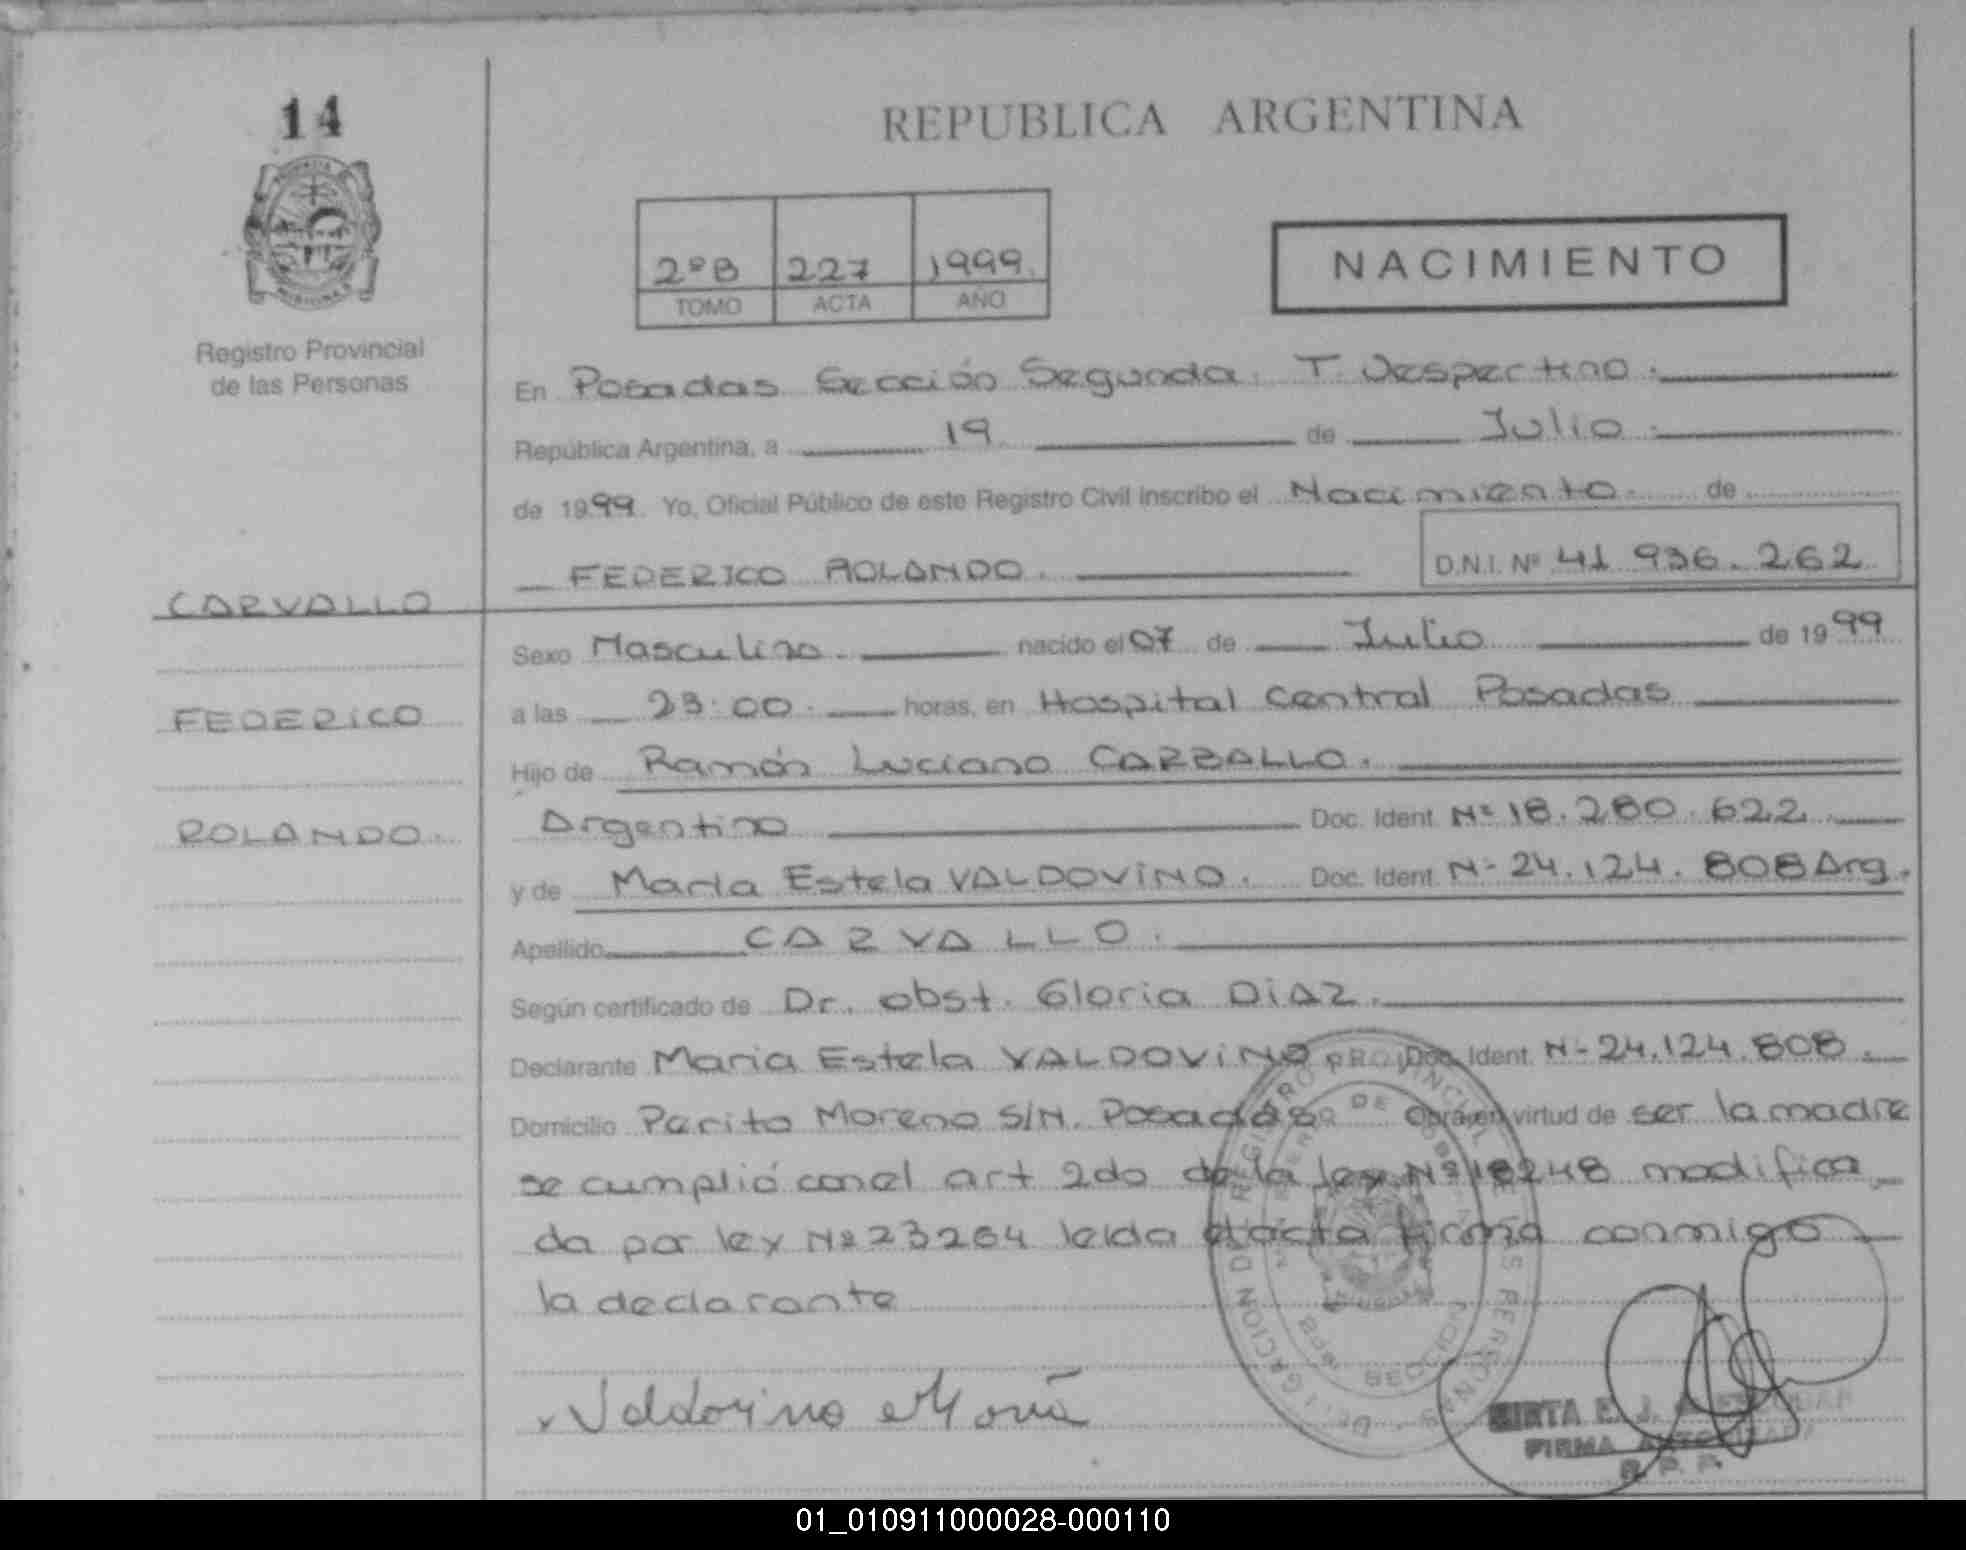 14
REPUBLICA ARGENTINA
2ºB 227 1999
TOMO ACTA AÑO
NACIMIENTO
Registro Provincial
de las Personas
En Posadas Sección Segunda. T. Vespertino.
República Argentina, a 19 de Julio.
de 1999. Yo, Oficial Público de este Registro Civil inscribo el Nacimiento. de
FEDERICO ROLANDO. D.N.I. Nº 41 936.262
CARVALLO
FEDERICO
ROLANDO.
Sexo Masculino. nacido el 07 de Julio de 1999
a las 23:00. horas, en Hospital Central Posadas
Hijo de Ramón Luciano CARBALLO.
Argentino Doc. Ident. Nº 18.280.622.
y de María Estela VALDOVINO. Doc. Ident. Nº 24.124.808 Arg.
Apellido CARVALLO.
Según certificado de Dr. obst. Gloria DIAZ.
Declarante Maria Estela VALDOVINO Doc. Ident. Nº 24.124.808.
Domicilio Perito Moreno S/N. Posadas Obra en virtud de ser la madre
se cumplió con el art 2do de la ley Nº 18248 modifica
da por ley Nº 23264 leida el acta firma conmigo
la declarante
Valdovino María
FIRMA AUTORIZADA
R. P. P.
01_010911000028-000110